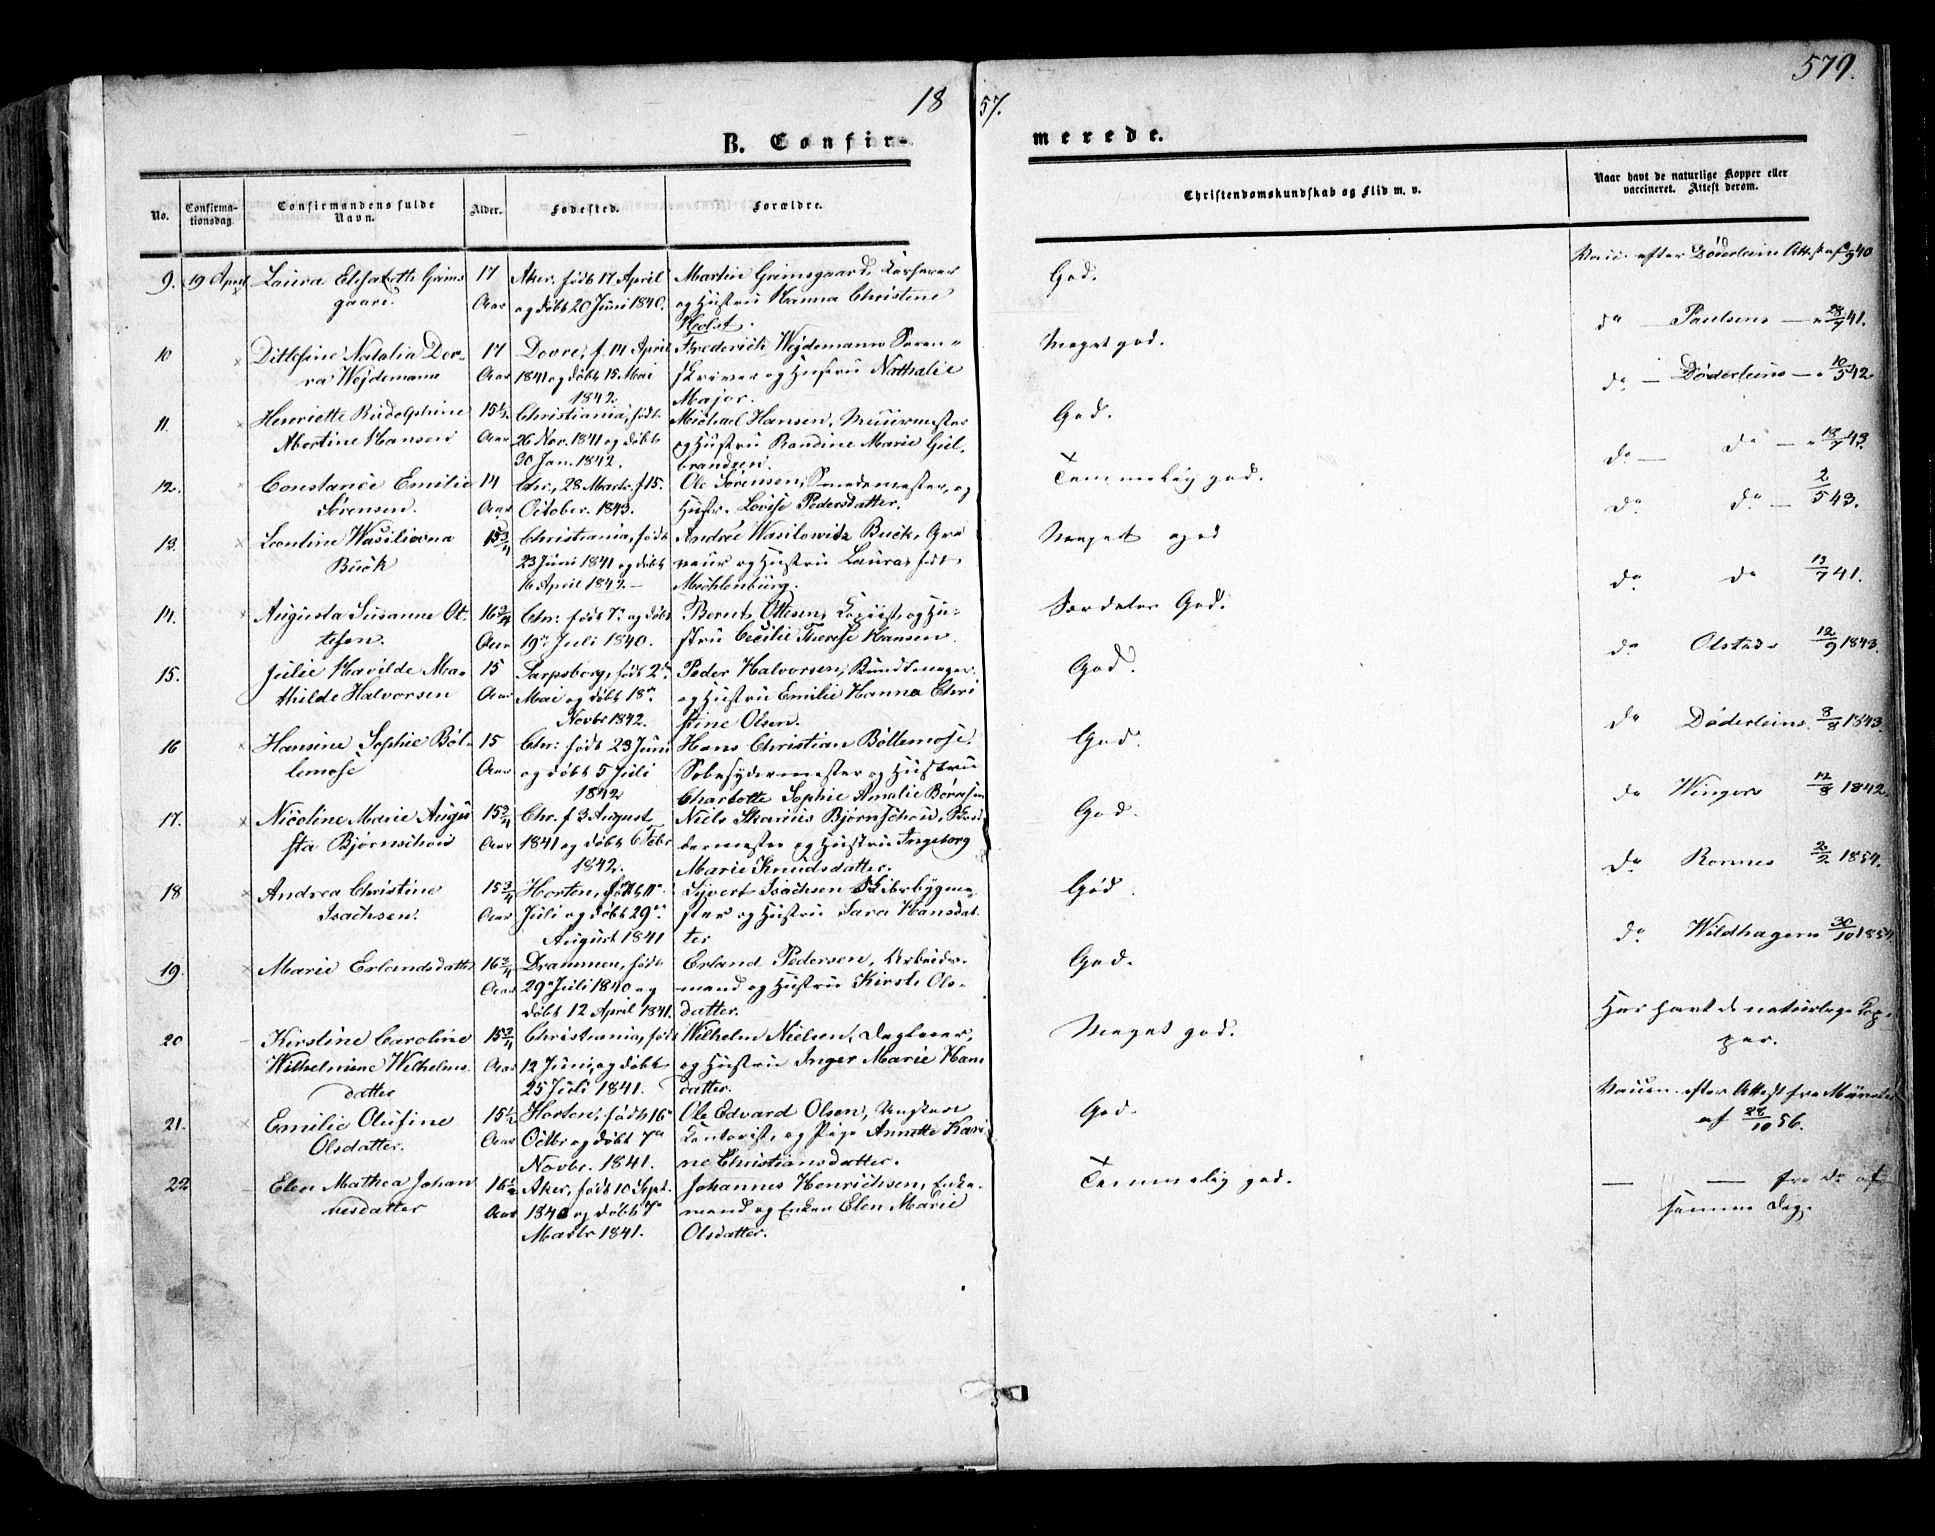 579.
18 57.
B. Confir- merede.
No. Confirma-tionsdag. Confirmandens fulde Navn. Alder. Fødested. Forældre. Christendomskundskab og Flid m. v. Naar havt de naturlige Kopper eller vaccineret. Attest derom.
9. 19 April Laura Elisabeth Grims 17 Aker, født 17 April Martin Grimsgaard, God. Vacc. efter Døderleins Attest af
gaard. Aar og døbt 20 Juni 1840. og Hustru Hanna Christine
Holst.
10 Ditlefine Natalia Dor- 17 Dovre, f. 14 April Frederich Wejdemann Soren- Meget god. do — Paulsens — 28/7 41.
ra Wejdemann Aar 1841 og døbt 15 Mai skriver og Hustru Nathalie
1842. Major.
11. Henriette Rudolphine 15½ Christiania, født Michael Hansen, Muurmester God. do — Døderleins — 10/5 42
Abertine Hansen Aar 26 Nov. 1841 og døbt og Hustru Randine Marie Gul-
30 Jan. 1842. brandsen.
12. Constance Emilie 14 Chr., 28 Marts. f 15. Ole Sørensen, Smedemester, og Temmelig god. do — do — 18/7 43.
Sørensen. Aar October. 1843. Hustr. Lovise Pedersdatter.
13. Leontine Wasiliovna 15¾ Christiania, født André Wasilowitz Buck, Gra Meget god do do — 2/5 43.
Buck 23 Juni 1841 og døbt veur og Hustru Laura født
16 April 1842. — Mechlenburg.
14. Augusta Susanne Ot- 16¾ Chr: født 7. og døbt Bernt Ottesen, Copiist og Hu- Særdeles God. do do 13/7 41.
tesen. Aar 19. Juli 1840. stru Cecilie Therese Hansen.
15. Julie Havilde Ma- 15 Sarpsborg, født 2. Peder Halvorsen, Bundtmager God. do Olstads 12/9 1843.
thilde Halvorsen Aar Mai og døbt 18. og Hustru Emilie Hanna Chri
Novbr 1842. stine Olsen.
16 Hansine Sophie Böl- 15 Chr: født 23 Juni Hans Christian Böllemose, God. do Døderleins. 8/8 1843.
lemose Aar og døbt 5 Juli Sæbesydermester og Hustru
1842 Charlotte Sophie Amalie Børresen
17. Nicoline Marie Augu 15¾ Chr. f 3 August Niels Skarius Bjørnschou, God. do Wingers 12/8 1842.
sta Bjørnschou Aar 1841 og døbt 6 Febr dermester og Hustru Ingeborg
1842. Marie Knudsdatter.
18 Andrea Christine 15¾ Horten, født 11. Syvert Isachsen Skibsbygme- God. do Romnes 2/2 1854.
Isachsen. Aar Juli og døbt 29. ster og Hustru Sara Hansdat-
August 1841 ter
19. Marie Erlandsdatter 16¾ Drammen, født Erland Pedersen, Arbeids- God. do Wildhagens 30/10 1854
Aar 29. Juli 1840 og mand og Hustru Kirsti Ols-
døbt 12 April 1841. datter.
20 Kirstine Caroline 15¾ Christiania, født Wilhelm Nielsen, Dagleier, Meget god. Har havt de naturlige Kop-
Wilhelmine Wilhelms Aar 12 Juni, og døbt og Hustru Inger Marie Hans per.
datter 25 Juli 1841. datter.
21. Emilie Olufine 15½ Horten, født 16. Ole Edvard Olsen, Ungkarl God. Vaccin. efter Attest fra Münster
Olsdatter. Aar Octbr og døbt 7. Contorist, og Pige Annette Kari af 28/10 56.
Novbr. 1841. ne Christiansdatter.
22 Elen Mathea Johan 16½ Aker, født 10 Sept. Johannes Henrichsen, Enke- Temmelig god. — — fra do af
nesdatter Aar 1840 og døbt 7. mand og Enken Elen Marie samme Dag.
Marts 1841. Olsdatter.